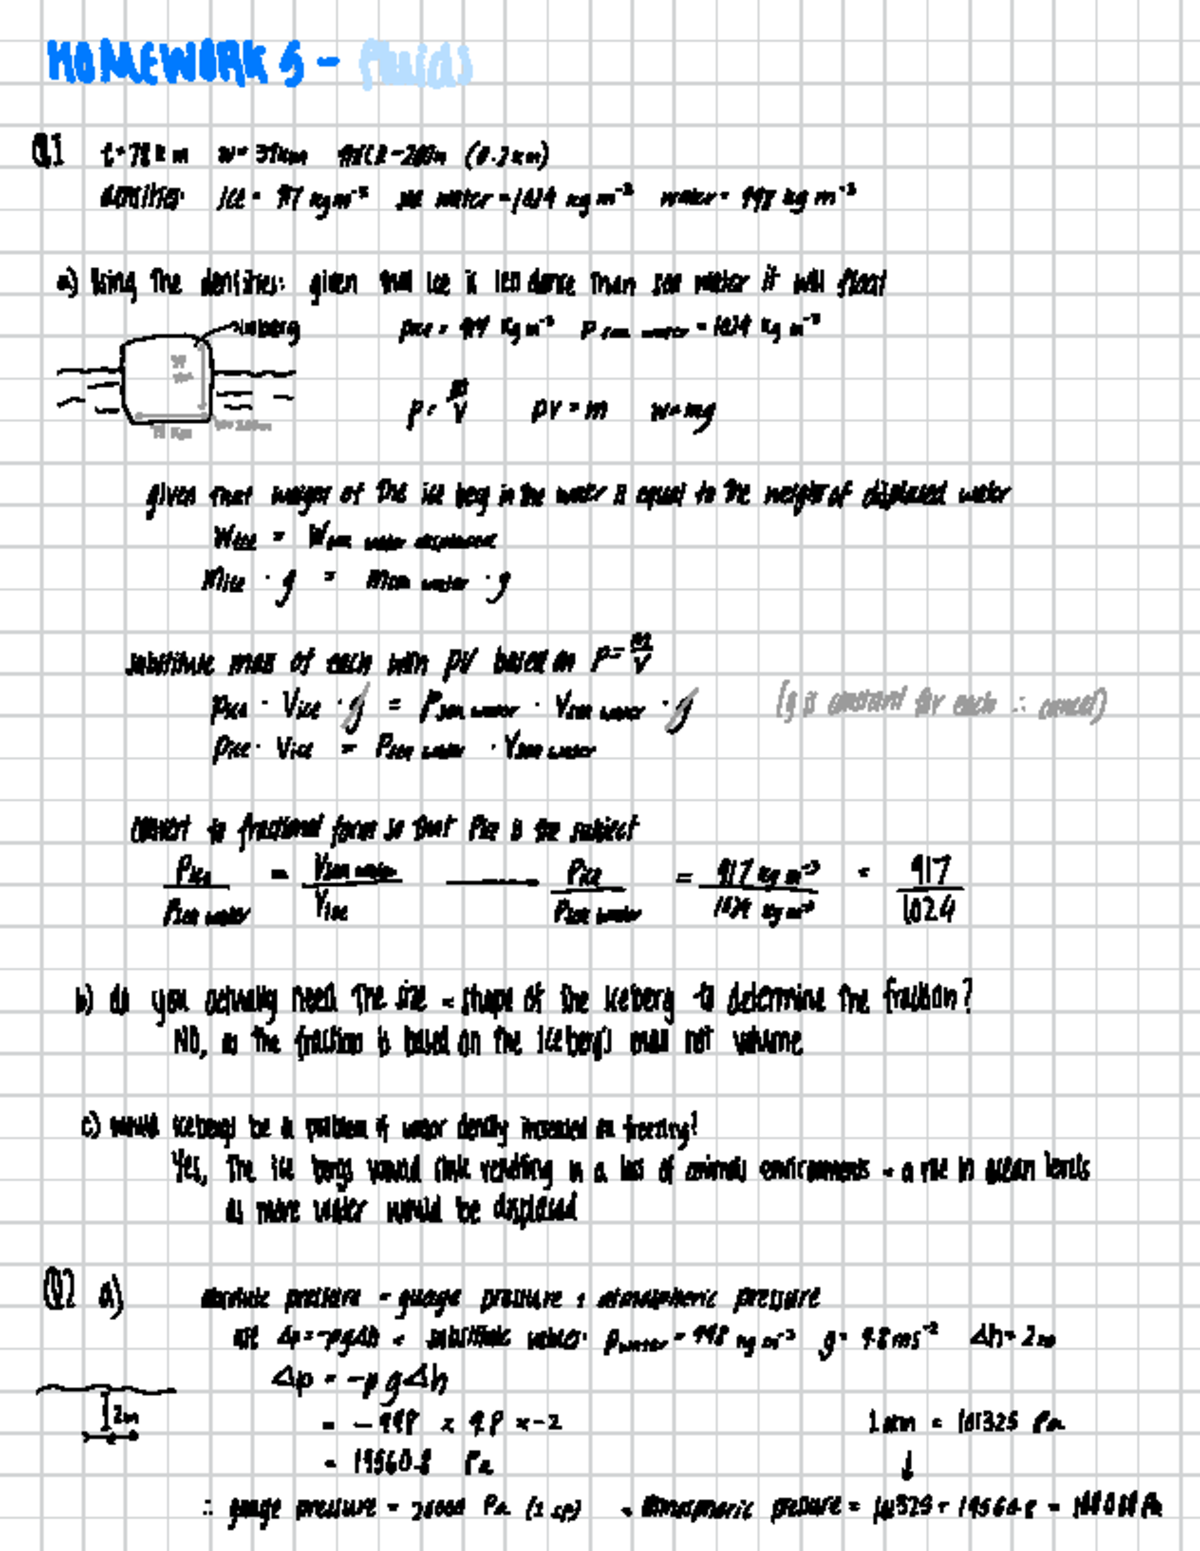 HOMEWORK 5 - fluids
Q1 t=78km w=39km thick=200m (0.2km)
densities: ice = 917 kg m⁻³ sea water = 1024 kg m⁻³ water = 998 kg m⁻³
a) Using the densities: given that ice is less dense than sea water it will float
iceberg ρice = 917 kg m⁻³ ρ sea water = 1024 kg m⁻³
ρ = m/V ρV = m w=mg
given that weight of the ice berg in the water is equal to the weight of displaced water
Wice = Wsea water displaced
mice · g = msea water · g
substitute mass of each with ρV based on ρ = m/V
ρice · Vice · g = ρsea water · Vsea water · g (g is constant for each ∴ cancel)
ρice · Vice = ρsea water · Vsea water
convert to fractional form so that ρice is the subject
ρice/ρsea water = Vsea water/Vice ρice/ρsea water = 917 kg m⁻³/1024 kg m⁻³ = 917/1024
b) do you actually need the size + shape of the iceberg to determine the fraction?
NO, as the fraction is based on the icebergs mass not volume
c) would icebergs be a problem if water density increased on freezing?
Yes, the ice bergs would sink resulting in a loss of animals environments + a rise in ocean levels
as more water would be displaced
Q2 a) absolute pressure = guage pressure + atmospheric pressure
use Δp=-ρgΔh + substitute values: ρwater = 998 kg m⁻³ g = 9.8ms⁻² Δh = 2m
Δp = -ρgΔh
2m = -998 x 9.8 x -2 1 atm = 101325 Pa
= 19560.8 Pa ↓
∴ guage pressure = 20000 Pa (1 sf) atmospheric pressure = 101325 + 19560.8 =